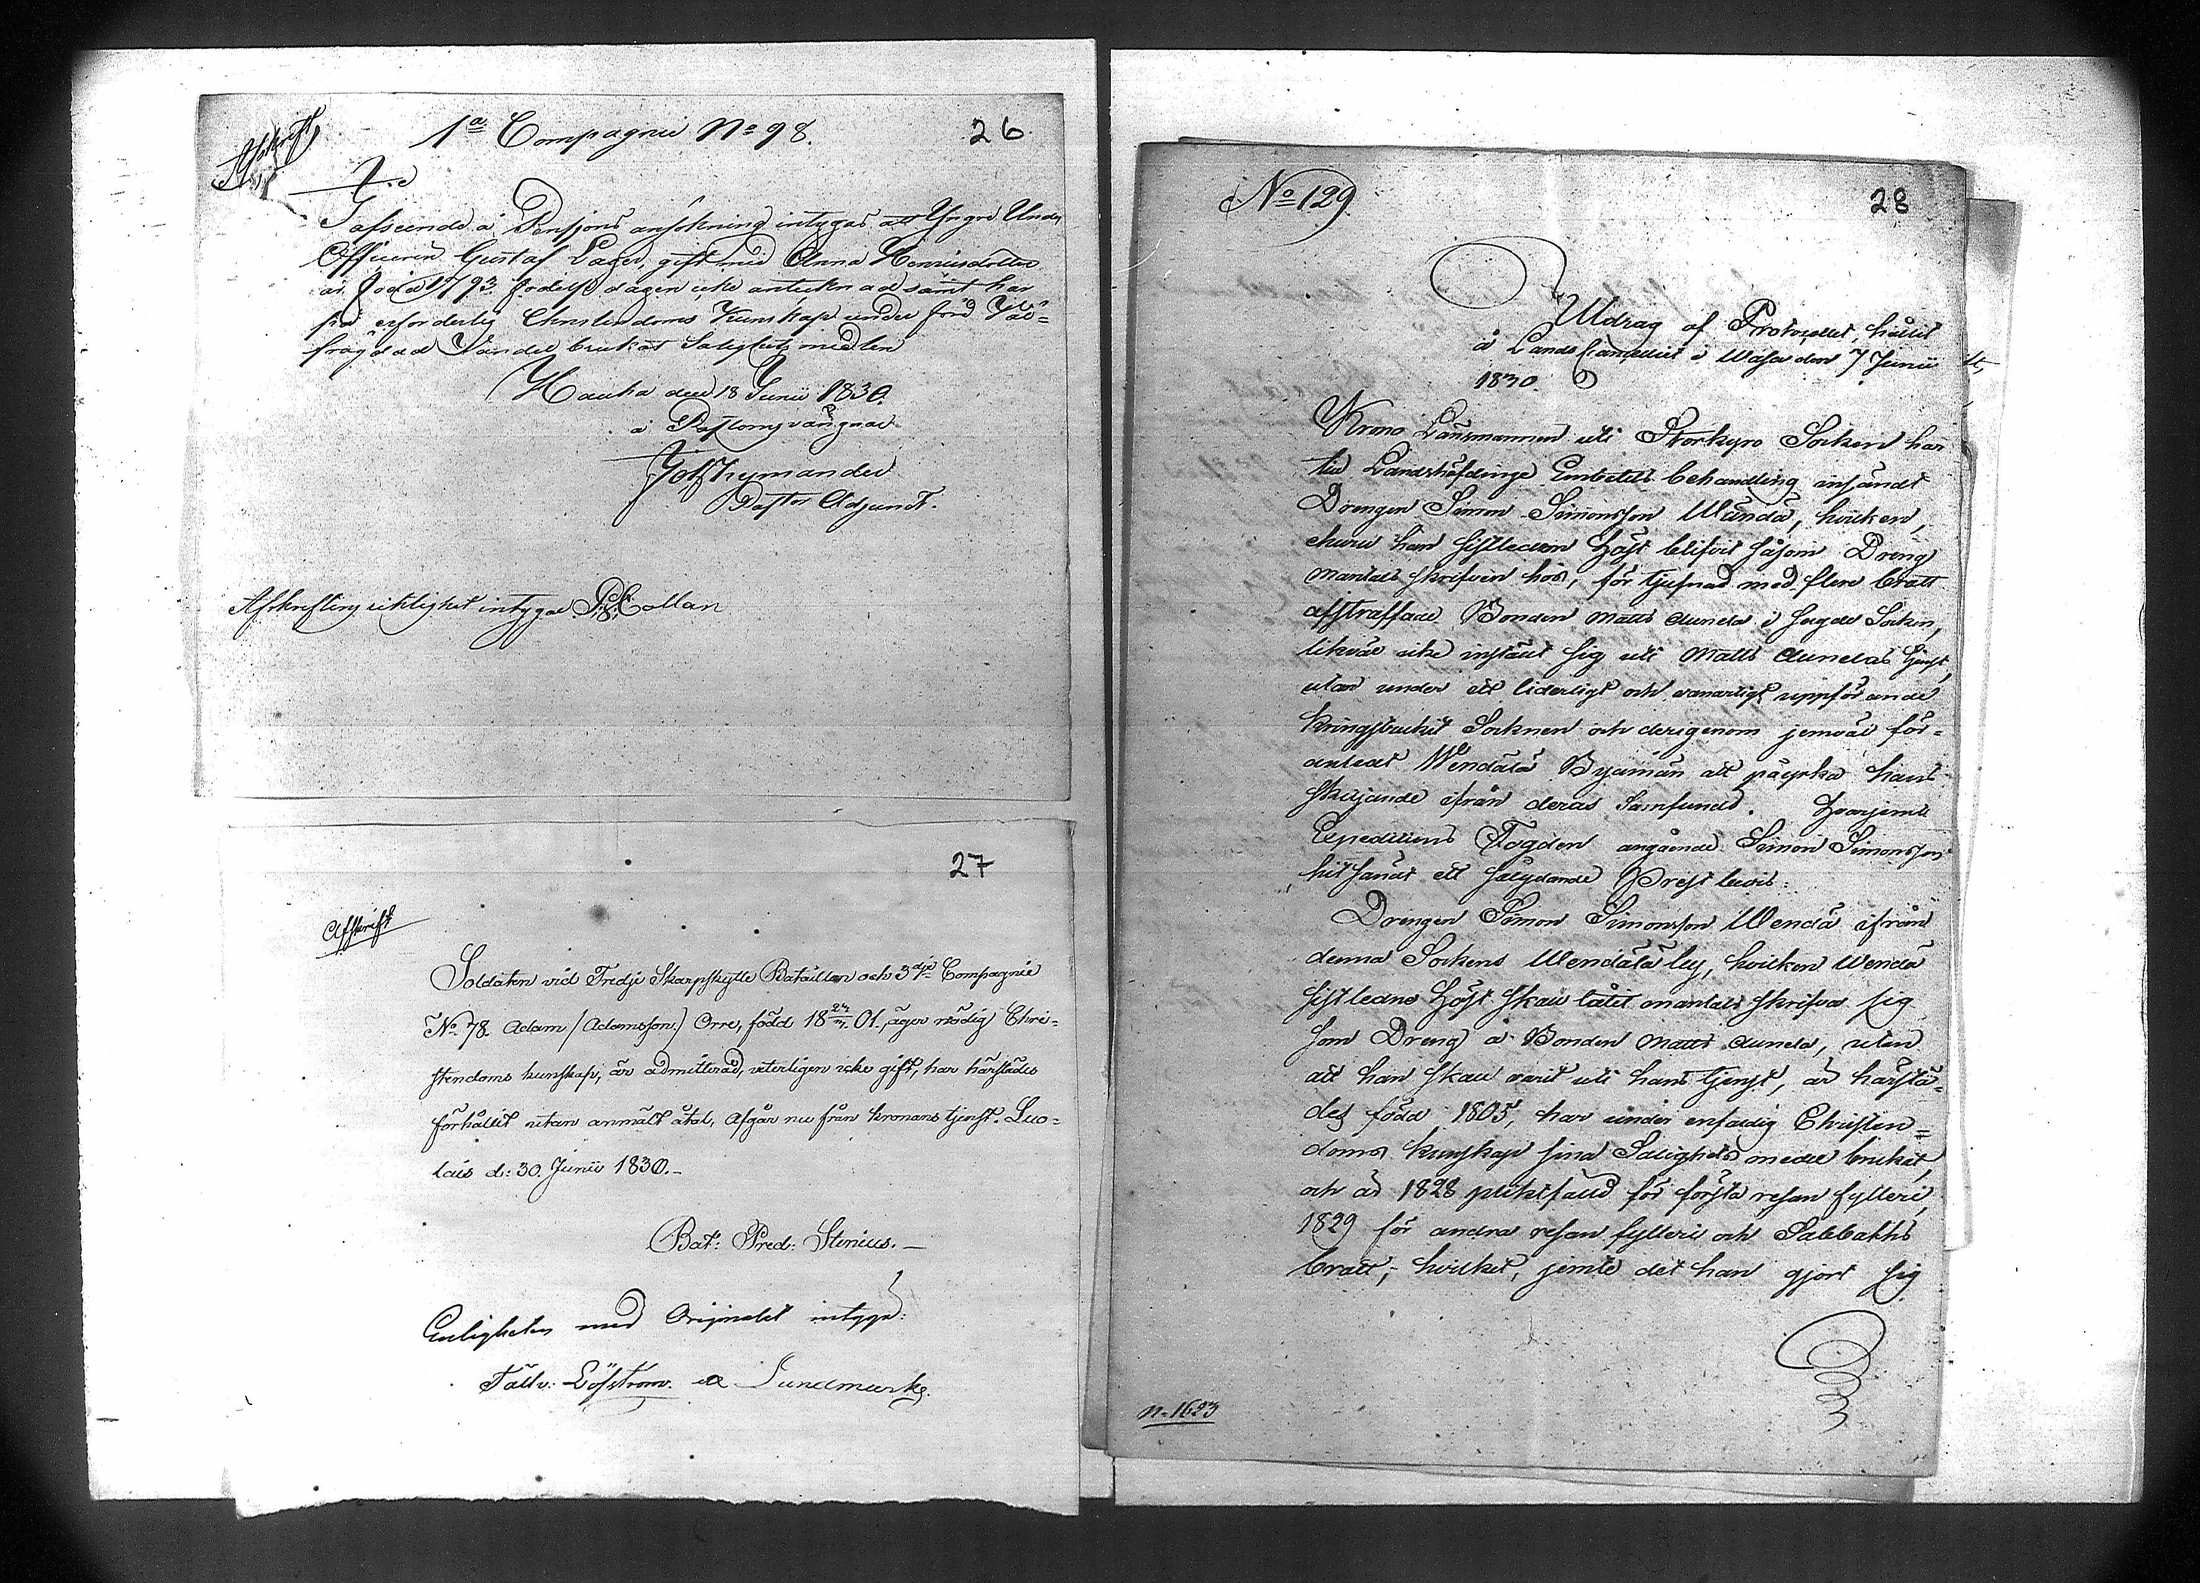 Afskrift
1a Compagnie No 98.
26
I afseende å Pensjons ansökning intygas att Yngre Under
Officeren Gustaf Lager, gift med Anna Henricsdotter
är född 1793 födelse dagen icke antecknad samt har
för erforderlig Christendoms Kunskap under förd Väl=
frägdad Vandel brukat Salighets medlen
Hauho den 18 Junii 1830.
å Pastorns vägnar
Joh Thymander
Pastor Adjunct.
Afskriftens riktighet intygar Collan
27
Afskrift
Soldaten vid Tredje Skarpskytte Bataillon och 3dje Compagnie
No 78. Adam /Adamsson/ Orre, född 18 01. äger nödig Chri=
stendoms kunskap, är admitterad, veterligen icke gift, har härstädes
förhållit utan anmält åtal, Afgår nu från kronans tjenst. Luo=
lais d: 30. Junii 1830.-
Bat: Pred: Stenius.-
Enligheten med Originalet intygar:
Fältv: Löfström. Lundmark.
No 129
28
Utdrag af Protocollet, hållit
å Lands Cancelliet i Wasa den 7 Junii
1830.
Krono Länsmannen uti Storkyro Socken har
till Landshöfdinge Embetets behandling insändt
Drengen Simon Simonsson Wändä, hvilken,
ehuru han sistledne höst blifvit såsom Dreng
mantals skrifven hos, för tjufnad med flere brott
afstraffade Bonden Matts Aunela i sagde Socken,
likväl icke instält sig uti Matts Aunelas tjenst,
utan under ett liderligt och vanartigt uppförande
kringstrukit Socknen och derigenom jemväl för=
anledt Wendälä Byamän att påyrka hans
skiljande ifrån deras Samfund. Hvarjemte
Expeditions Fogden angående Simon Simonsson
hitsändt ett sålydande Prest bevis:
Drengen Simon Simonsson Wendä ifrån
denna Sockens Wendälä by, hvilken Wendä
sistledne höst skall låtit mantals skrifva sig
som Dreng å Bonden Matts Aunela, utan
att han skall varit uti hans tjenst, är härstä=
des född 1805, har under enfaldig Christen=
doms kunskap sina Salighets medel brukat,
och är 1828 pliktfälld för första resan fylleri,
1829 för andra resan fylleri och Sabbaths
brott; hvilket, jemte det han gjort sig
n. 1623